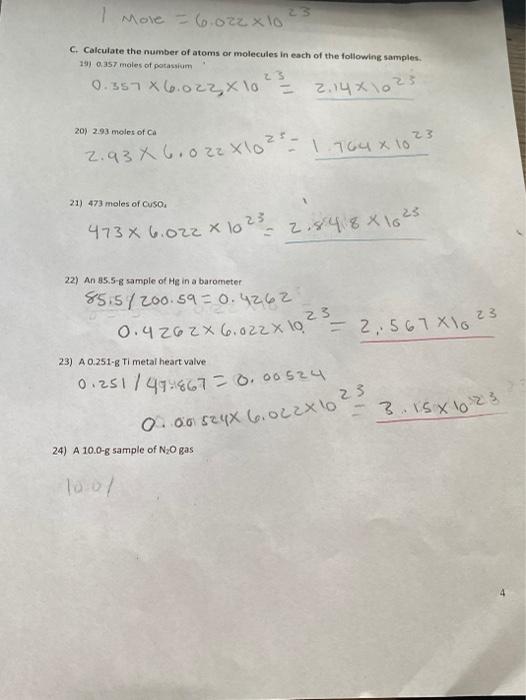 1 Mole = 6.022 x 10²³
C. Calculate the number of atoms or molecules in each of the following samples.
19) 0.357 moles of potassium
0.357 x 6.022 x 10²³ = 2.14 x 10²³
20) 2.93 moles of Ca
2.93 x 6.022 x 10²³ = 1.764 x 10²³
21) 473 moles of CuSO₄
473 x 6.022 x 10²³ = 2.848 x 10²³
22) An 85.5-g sample of Hg in a barometer
85.5 / 200.59 = 0.4262
0.4262 x 6.022 x 10²³ = 2.567 x 10²³
23) A 0.251-g Ti metal heart valve
0.251 / 47.867 = 0.00524
0.00524 x 6.022 x 10²³ = 3.15 x 10²³
24) A 10.0-g sample of N₂O gas
10.0 /
4